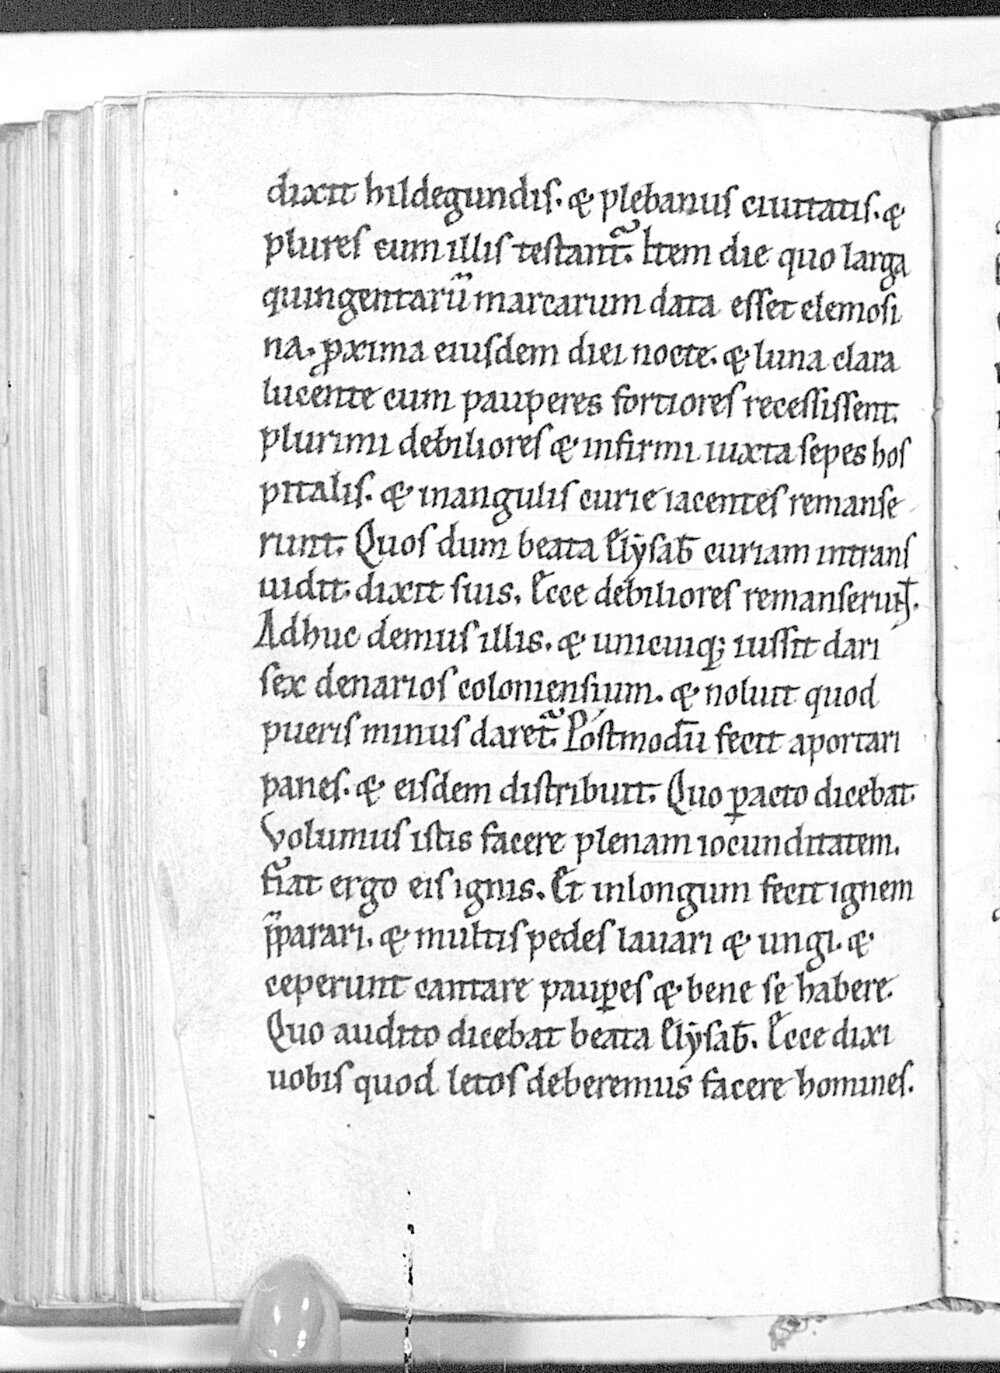 dixit hildegundis. & plebanus ciuitatis. &
plures cum illis testant᷑. Item die quo larga
quingentarū marcarum data esset elemosi
na. ꝓxima eiusdem diei nocte. & luna clara
lucente cum pauperes fortiores recessissent.
plurimi debiliores & infirmi iuxta sepes hos
pitalis. & inangulis curie iacentes remanse
runt. Quos dum beata Elẏsab̄ curiam intrans
uidit. dixit suis. Ecce debiliores remanserunt.
Adhuc demus illis. & unicuiq; iussit dari
sex denarios coloniensium. & noluit quod
pueris minus daret᷑. Postmodū fecit aportari
panes. & eisdem distribuit. Quo ꝑacto dicebat.
Volumus istis facere plenam iocunditatem.
fiat ergo eis ignis. Et inlongum fecit ignem
p̄parari. & multis pedes lauari & ungi. &
ceperunt cantare pauꝑes & bene se habere.
Quo audito dicebat beata Elẏsab̄. Ecce dixi
uobis quod letos deberemus facere homines.